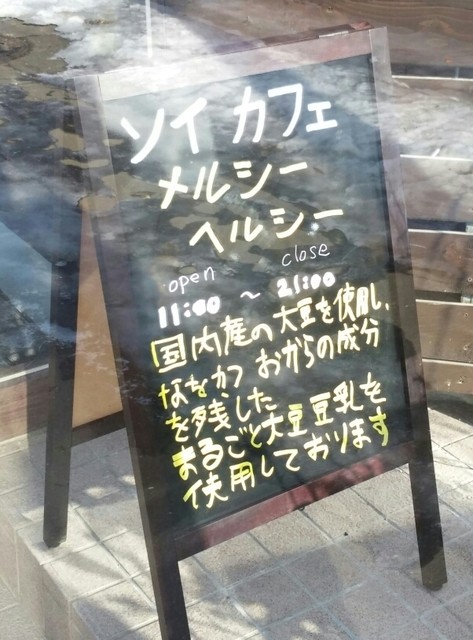 ソイ カフェ
メルシー
ヘルシー
open close
11:00 ~ 21:00
国内産の大豆を使用し、
なをかつ おからの成分
を残した
まるごと大豆豆乳を
使用しております